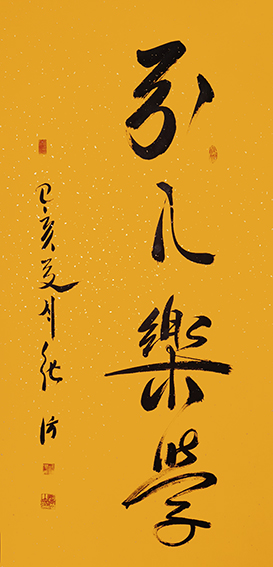 引人樂學
己亥夏月張